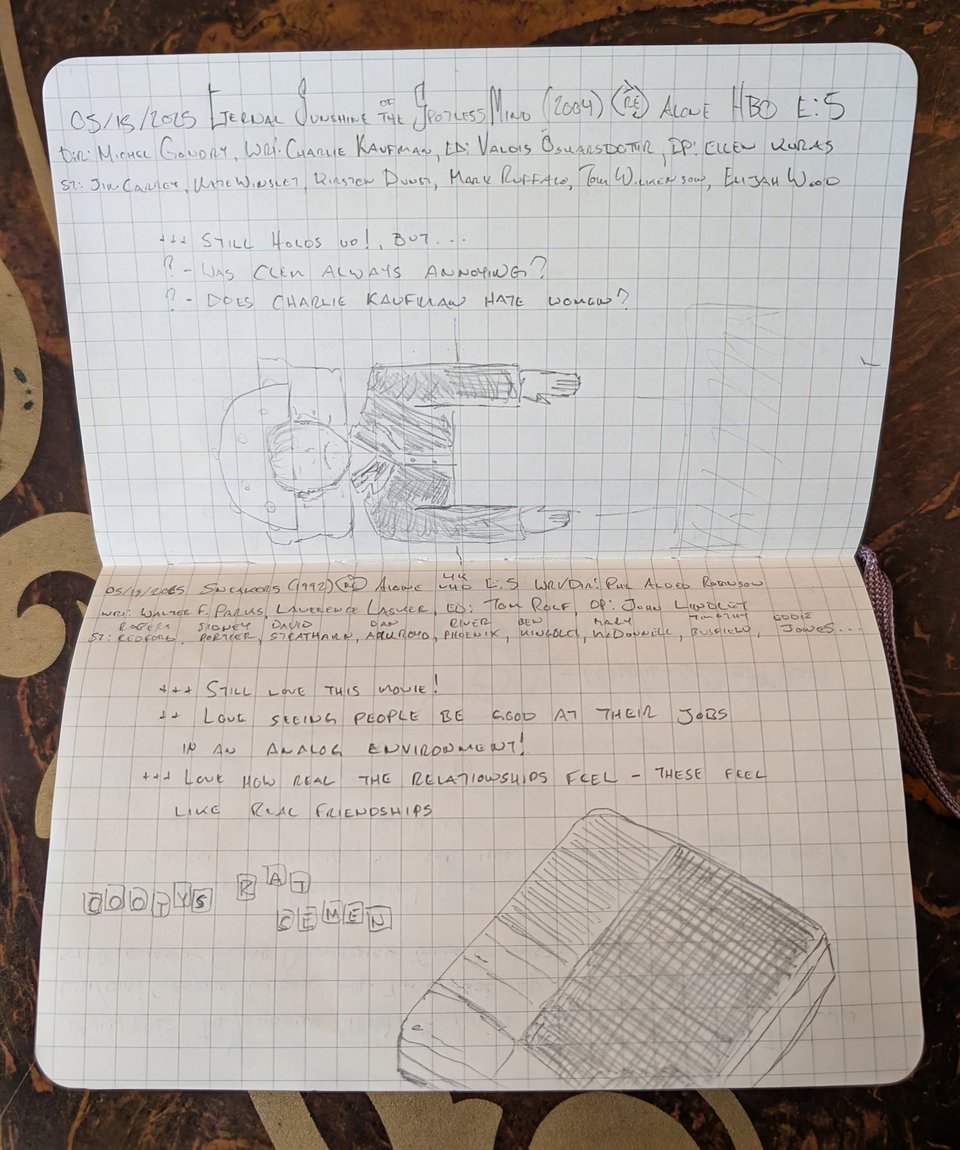 05/15/2025 ETERNAL SUNSHINE OF THE SPOTLESS MIND (2004) (RE) ALONE HBO E:5
DIR: MICHEL GONDRY, WRI: CHARLIE KAUFMAN, ED: VALDIS ÓSKARSDÓTTIR, DP: ELLEN KURAS
ST: JIM CARREY, KATE WINSLET, KIRSTEN DUNST, MARK RUFFALO, TOM WILKINSON, ELIJAH WOOD
+++ STILL HOLDS UP!, BUT...
? - WAS CLEM ALWAYS ANNOYING?
? - DOES CHARLIE KAUFMAN HATE WOMEN?
05/18/2025 SNEAKERS (1992) (RE) ALONE 4K UHD E:5 WRI/DIR: PHIL ALDEN ROBINSON
WRI: WALTER F. PARKES, LAWRENCE LASKER, ED: TOM ROLF, DP: JOHN LINDLEY
ROBERT SIDNEY DAVID DAN RIVER BEN MARY TIMOTHY EDDIE
ST: REDFORD, POITIER, STRATHAIRN, AYKROYD, PHOENIX, KINGSLEY, MCDONNELL, BUSFIELD, JONES...
+++ STILL LOVE THIS MOVIE!
++ LOVE SEEING PEOPLE BE GOOD AT THEIR JOBS
IN AN ANALOG ENVIRONMENT!
+++ LOVE HOW REAL THE RELATIONSHIPS FEEL - THESE FEEL
LIKE REAL FRIENDSHIPS
COOTYS RAT
SEMEN